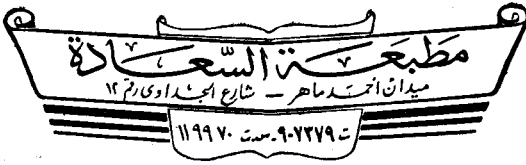 مطبعة السعادة
ميدان أحمد ماهر – شارع الجداوى رقم ١٢
ت ٩٠٧٣٧٩ - سدت ١١٩٩٧٠